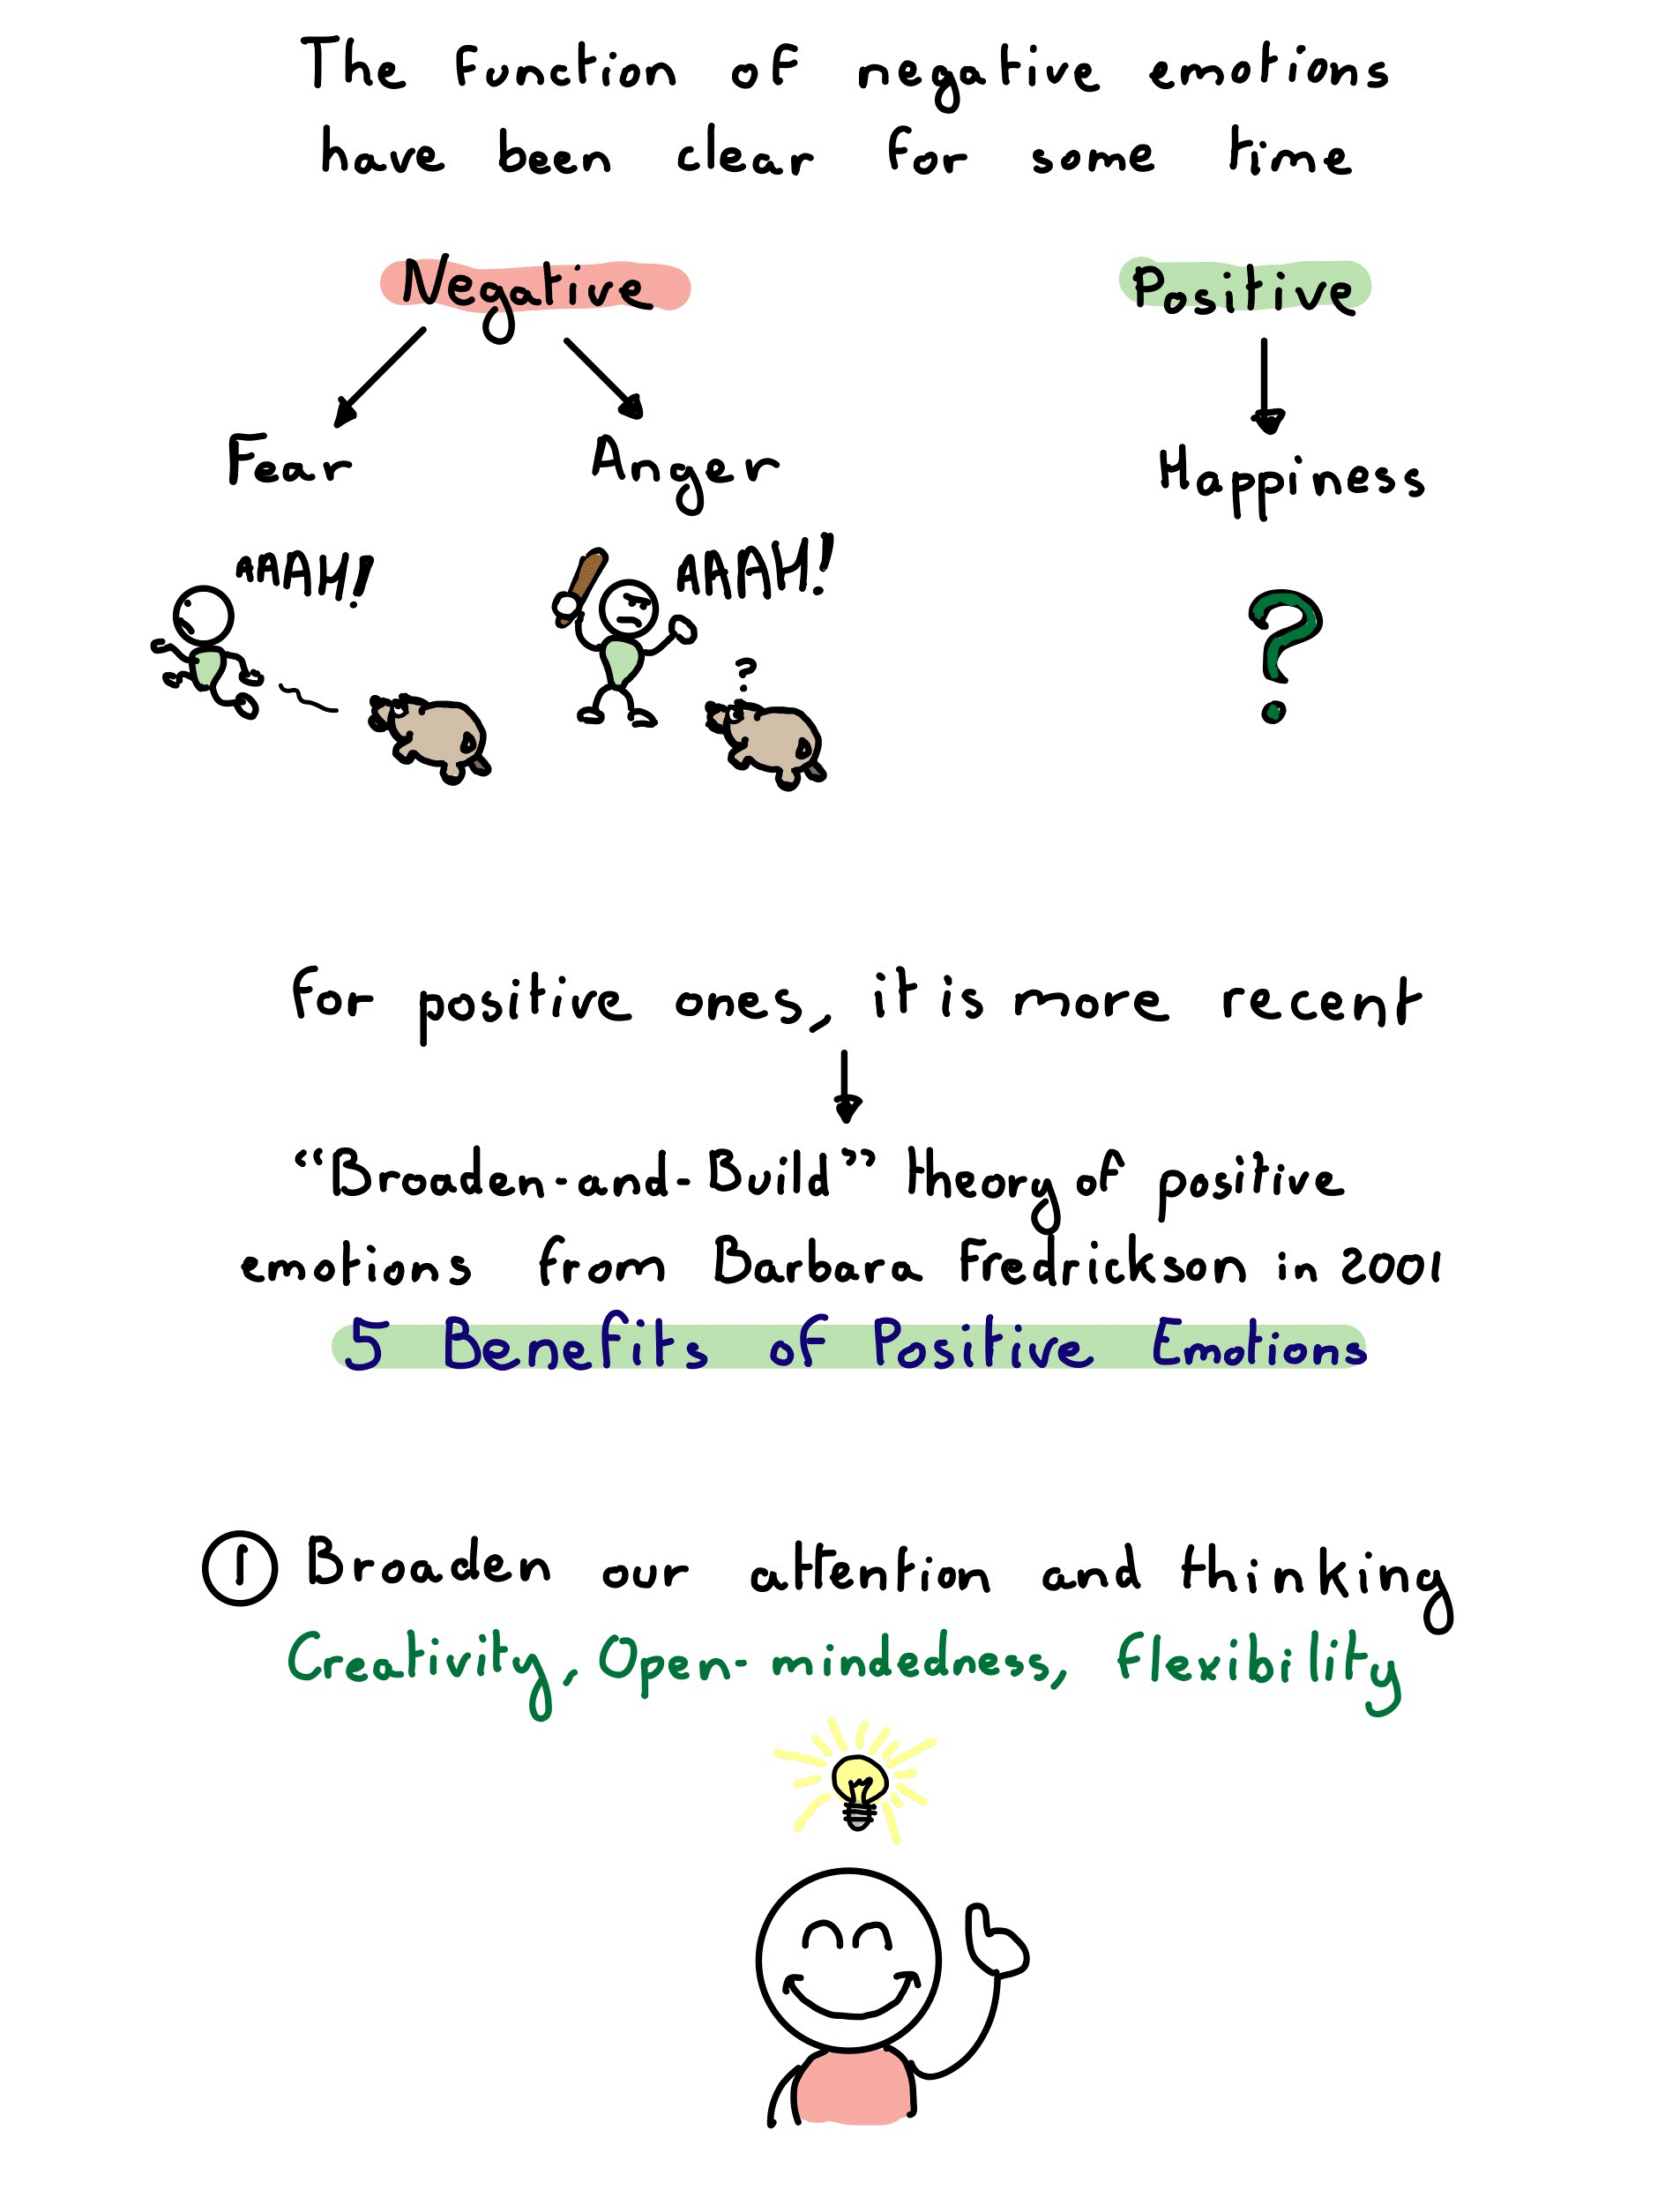 The function of negative emotions
have been clear for some time
Negative
Positive
Fear
Anger
Happiness
AAAH!
AAAH!
?
?
for positive ones, it is more recent
“Broaden-and-Build” theory of positive
emotions from Barbara Fredrickson in 2001
5 Benefits of Positive Emotions
1 Broaden our attention and thinking
Creativity, Open-mindedness, flexibility